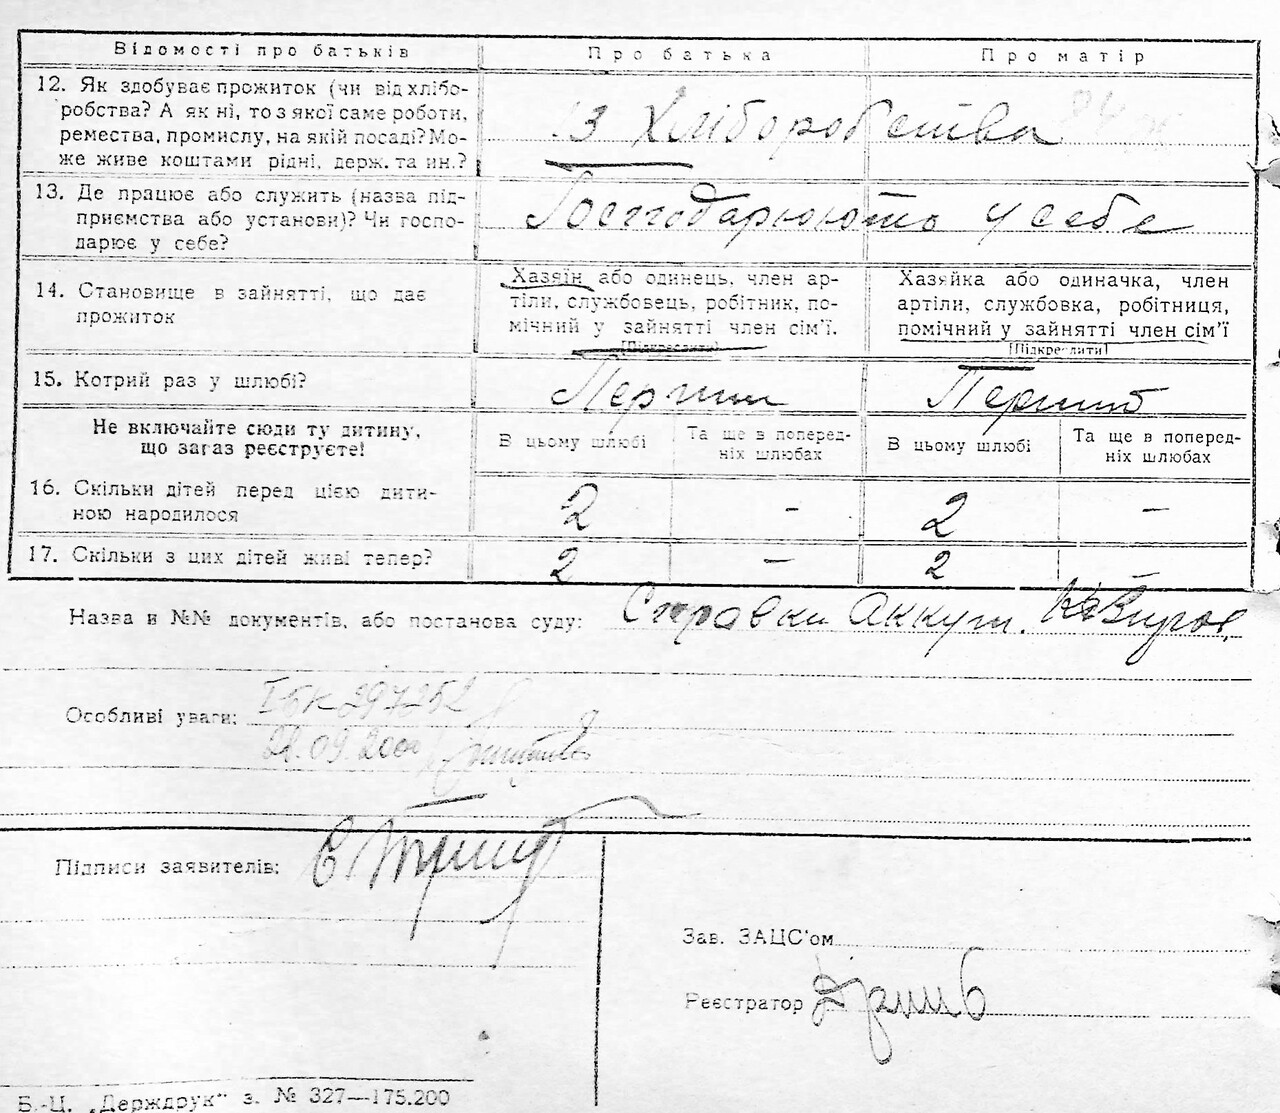 Відомості про батьків
Про батька
Про матір
12. Як здобуває прожиток (чи від хлібо-
робства? А як ні, то з якої саме роботи,
ремества, промислу, на якій посаді? Мо-
же живе коштами рідні, держ. та ин.?
Із Хліборобства
13. Де працює або служить (назва під-
приємства або установи)? Чи госпо-
дарює у себе?
Господарюють у себе
14. Становище в зайнятті, що дає
прожиток
Хазяїн або одинець, член ар-
тіли, службовець, робітник, по-
мічний у зайнятті член сім'ї.
[Підкреслити]
Хазяйка або одиначка, член
артіли, службовка, робітниця,
помічний у зайнятті член сім'ї
[Підкреслити]
15. Котрий раз у шлюбі?
Перший
Перший
Не включайте сюди ту дитину,
що зараз реєструєте!
В цьому шлюбі
Та ще в поперед-
ніх шлюбах
В цьому шлюбі
Та ще в поперед-
ніх шлюбах
16. Скільки дітей перед цією дити-
ною народилося
2
-
2
-
17. Скільки з цих дітей живі тепер?
2
-
2
Назва и №№ документів, або постанова суду: Справки Аккуш.
Особливі уваги: І-БК 297252
22.09.2000
Підписи заявителів:
Зав. ЗАЦС'ом
Реєстратор
Б.-Ц. „Держдрук" з. № 327—175.200